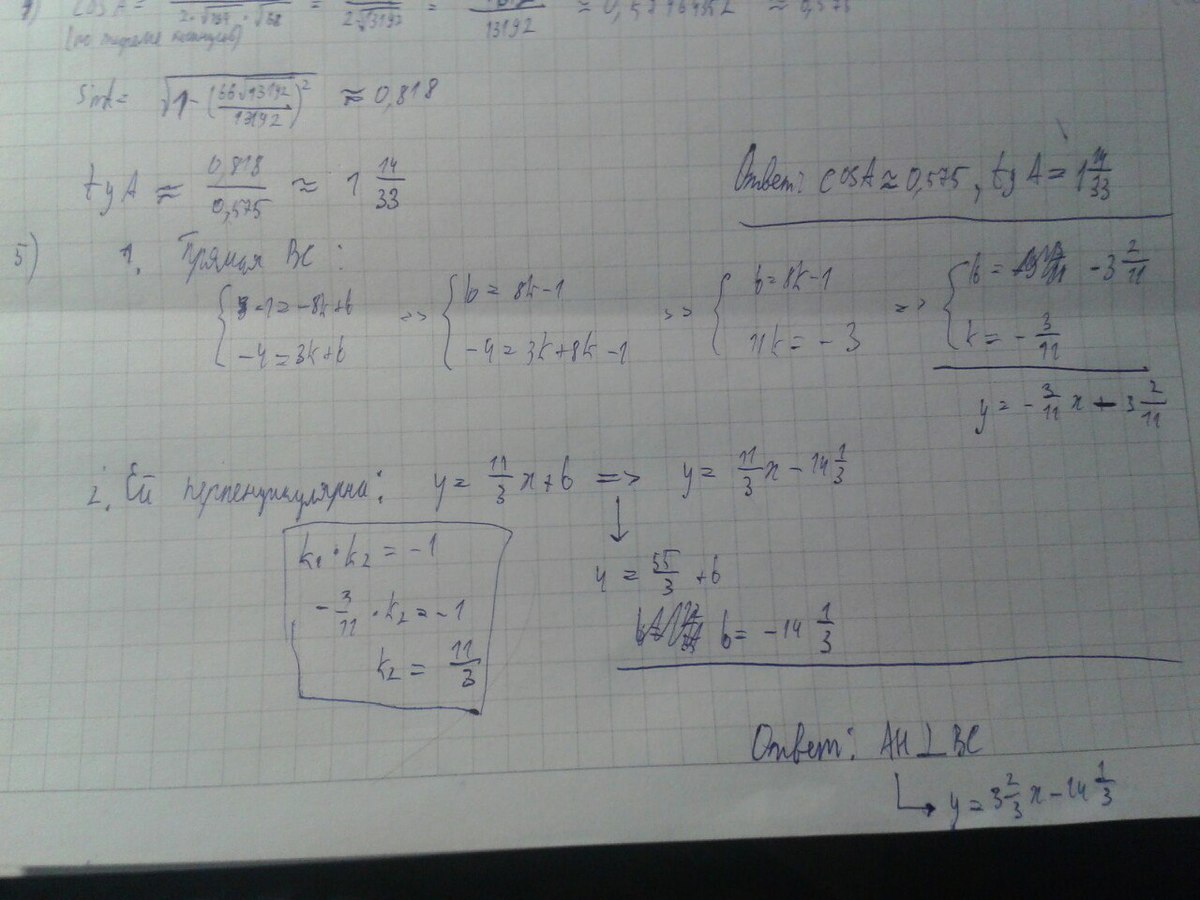 cos A = = = ≈ 0,57464952 ≈ 0,575
2·√194·√68 2√13192 13192
(по теореме косинусов)
sinA = √(1-(66√13192/13192)²) ≈ 0,818
tg A ≈ 0,818/0,575 ≈ 1 14/33
Ответ: cosA ≈ 0,575, tg A = 1 14/33
5) 1. Прямая BC:
{ -1 = -8k+b => { b = 8k-1 => { b = 8k-1 => { b = -3 2/11
-4 = 3k+b -4 = 3k+8k-1 11k = -3 k = -3/11
y = -3/11 x - 3 2/11
2. Ей перпендикулярна: y = 11/3 x + b => y = 11/3 x - 14 1/3
k₁·k₂ = -1
-3/11·k₂ = -1
k₂ = 11/3
↓
4 = 55/3 + b
b = -14 1/3
Ответ: AH ⊥ BC
↳ y = 3 2/3 x - 14 1/3